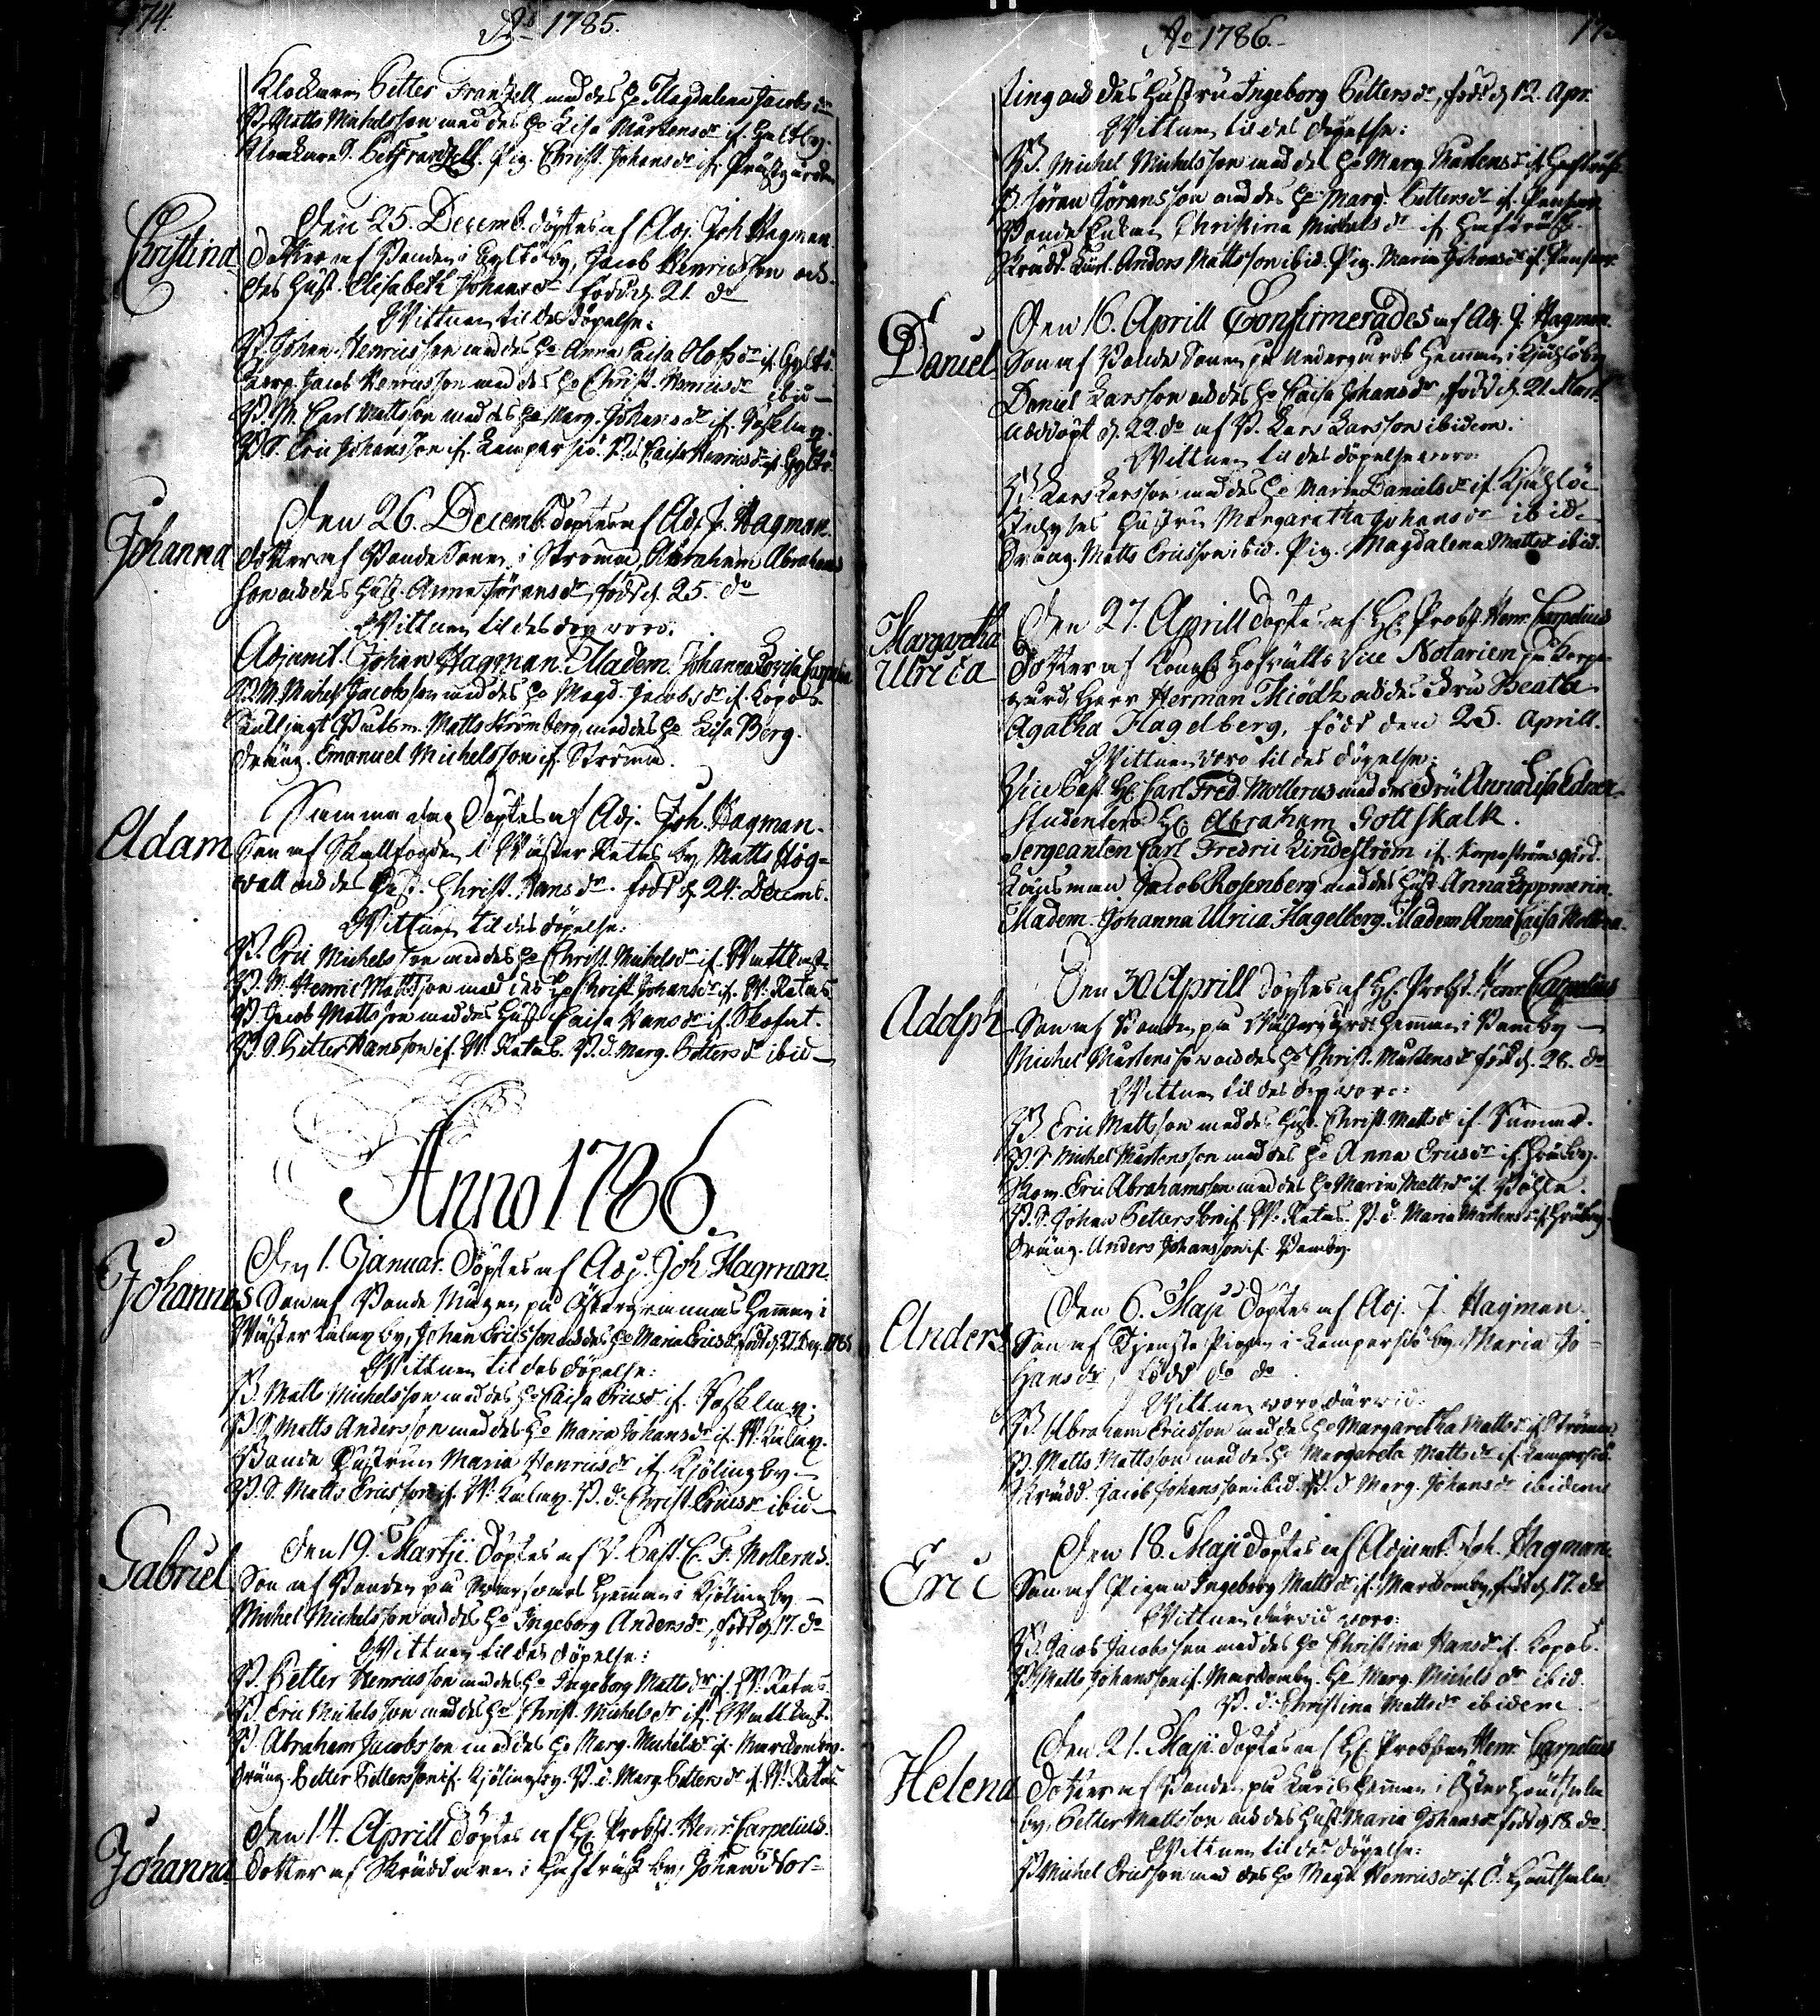 174.
Ao 1785.
Klockaren Petter Frantzell med des Ho Magdalena Jacobs dr
B. Matts Michelsson med des Ho Lisa Mårtens dr if.
Klockare S. Pet. Frantzell. Pig. Christ. Johans dr if. Prästgården
Christina
Den 25. Decemb. döptes af Adj. Joh Hagman.
Dotter af Bonden i Gyltöby, Jacob Henricsson och
des Hust. Elisabeth Johans dr född d. 21. do
Wittnen til des döpelse:
B. Johan Henricsson med des Ho Anna Caisa Olofs dr if. Gyltö.
Corp. Jacob Henricsson med des Ho Christ. Henrics dr ibid
B. M. Carl Mattsson med des Ho Marg. Johans dr if.
B. S. Eric Johansson if. Kampersiö. B. d. Caisa Henrics dr if. Gyltö.
Johanna
Den 26. Decemb. döptes af Adj. J. Hagman.
Dotter af Bonde Sonen i Strömma, Abraham Abrahams
son och des Hust. Anna Jörans dr, född d. 25. do
Wittnen til des dop voro:
Adjunct. Johan Hagman. Madem. Johanna Lovisa Carpelia
B. M. Michel Jacobsson med des Ho Magd. Jacobs dr if. Kopos
Matts Strömberg, med des Ho Lisa Berg.
Dräng. Emanuel Michelsson if. Strömma.
Adam
Samma dag döptes af Adj. Joh. Hagman.
Son af Skallfogden i Wäster Retais by Matts Hög=
wall och des Hust. Christ. Hans dr. född d. 24. Decemb.
Wittnen til des döpelse:
B. Eric Michelsson med des Ho Christ. Michels dr if. Wattkast.
B. M. Henric Mattsson med des Ho Christ. Johans dr if. W. Retais
B. Jacob Mattsson med des Hust Caisa Hans dr if.
B. S. Petter Hansson if. W. Retais. B. d. Marg. Petters dr ibid
Anno 1786.
Johannes
Den 1. Januar. döptes af Adj. Joh Hagman.
Son af Bonde Mågen på Östergrannas Hemman i
Wäster Kalax by, Johan Ericsson och des Ho Maria Erics dr, född d. 27. Dec. 1785
Wittnen til des döpelse:
B. Matts Michelsson med des Ho Caisa Erics dr if.
B. S. Matts Andersson med des Ho Maria Johans dr if. W. Kalax.
Bonde Hustrun Maria Henrics dr if. Kjölingby
B. S. Matts Ericsson if. W. Kalax. B. d. Christ. Erics dr ibid
Gabriel
Den 19. Martji. döptes af V. Past. C. F. Mollerus.
Son af Bonden på Hemman i Kjölingby
Michel Michelsson och des Ho Ingeborg Anders dr, född d. 17. do
Wittnen til des döpelse:
B. Petter Henricsson med des Ho Ingeborg Matts dr if. W. Retais.
B. Eric Michelsson med des Ho Christ. Michels dr if. Wattkast.
B. Abraham Jacobsson med des Ho Marg. Michels dr if. Marckomby.
Dräng. Petter Pettersson if. Kjölingby. B. d. Marg. Petters dr if. W. Retais
Johanna
Den 14. Aprill döptes af H. Probst. Henr. Carpelius.
Dotter af Skräddaren i by, Johan Nor=
Ao 1786.
ling och des Hustru Ingeborg Petters dr, född d. 12. Apr.
Wittnen til des döpelse:
B. Michel Michelsson med des Ho Marg Mårtens dr if.
B. Jöran Jöransson med des Ho Marg. Petters dr if.
Bonde Enkan Christina Michels dr if.
Skrädd. Anders Mattsson ibid. Pig. Maria Johans dr if.
Daniel
Den 16. Aprill Confirmerades af Adj. J. Hagman.
Son af Bonde Sonen på Undergårds Hemman i
Daniel Larsson och des Ho Caisa Johans dr, född d. 21. Mart.
nöddöpt d. 22. do af B. Lars Larsson ibidem.
Wittnen til des döpelse voro:
B. Lars Larsson med des Ho Maria Daniels dr if.
Hustru Margaretha Johans dr ibid.
Dräng. Matts Ericsson ibid. Pig. Magdalena Matts dr ibid.
Margaretha
Ulrica
Den 27. Aprill döptes af H. Probst Henr. Carpelius
Dotter af Kongl. Hofrätts Vice Notarien på Korpo
gård, Herr Herman Miödh och des Fru Beata
Agatha Hagelberg, född den 25. Aprill.
Wittnen voro til des döpelse:
Vice Past. H. Carl Fred. Mollerus med des Fru Anna Lisa
Studenten H. Abraham Gottskalk.
Sergeanten Carl Fredric Lindeström if. Korpoströms gård.
Länsman Jacob Rosenberg med des Hust. Anna
Madem. Johanna Ulrica Hagelberg. Madem. Anna Caisa
Adolph
Den 30 Aprill döptes af H. Probst. Henr. Carpelius
Son af Bonden på Wästergårds Hemman i
Michel Mårtensson och des Ho Christ. Mårtens dr född d. 28. do
Wittnen til des dop voro:
B. Eric Mattsson med des Hust. Christ. Matts dr if.
B. S. Michel Mårtensson med des Ho Anna Erics dr if.
Skom. Eric Abrahamsson med des Ho Maria Matts dr if.
B. S. Johan Pettersson if. W. Retais. B. d. Maria Mårtens dr if.
Dräng. Anders Johansson if.
Anders
Den 6. Maji döptes af Adj. J. Hagman.
Son af Tjenste Pigan i Kampersiö by, Maria Jo=
hans dr, född do do.
Wittnen voro därvid:
B. Abraham Ericsson med des Ho Margaretha Matts dr if. Strömma
B. Matts Mattsson med des Ho Margareta Matts dr if. Kampersiö.
Skrädd. Jacob Johansson ibid. B. d. Marg. Johans dr ibidem
Eric
Den 18. Maji döptes af Adjunct. Joh. Hagman.
Son af Pigan Ingeborg Matts dr if. Marckomby, född d. 17. do
Wittnen därvid voro:
B. Jacob Jacobsson med des Ho Christina Hans dr if. Kopos.
B. Matts Johansson if. Marckomby. Ho Marg. Michels dr ibid.
B. d. Christina Matts dr ibidem
Helena
Den 21. Maji döptes af H. Probsten Henr. Carpelius
Dotter af Bonden på Hemman i Öster
by, Petter Mattsson och des Hust. Maria Johans dr född d. 18. do.
Wittnen til des döpelse:
B. Michel Ericsson med des Ho Magd. Henrics dr if. Ö.